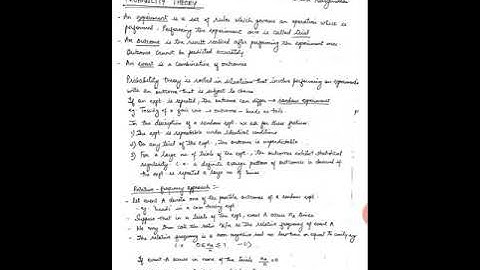 PROBABILITY THEORY
- An experiment is a set of rules which governs an operation which is
performed. Performing the experiment once is called trial
- An outcome is the result realised after performing the experiment once.
Outcome cannot be predicted accurately
- An event is a combination of outcomes
Probability theory is rooted in situations that involve performing an experiment
with an outcome that is subject to chance
If an expt. is repeated, the outcome can differ → random experiment
eg: Tossing of a coin → outcome - heads or tails.
In the description of a random expt. we ask for three features
1) The expt. is repeatable under identical conditions
2) On any trial of the expt., the outcome is unpredictable
3) For a large no. of trials of the expt., the outcomes exhibit statistical
regularity i.e. a definite average pattern of outcomes is observed if
the expt. is repeated a large no. of times
Relative-frequency approach :-
- Let event A denote one of the possible outcomes of a random expt.
eg: 'heads' in a coin tossing expt.
- Suppose that in n trials of the expt., event A occurs nA times
- We may then call the ratio nA/n as the relative frequency of event A
- The relative frequency is a non negative real no. less than or equal to unity
0 ≤ nA/n ≤ 1
If event A occurs in none of the trials nA/n = 0